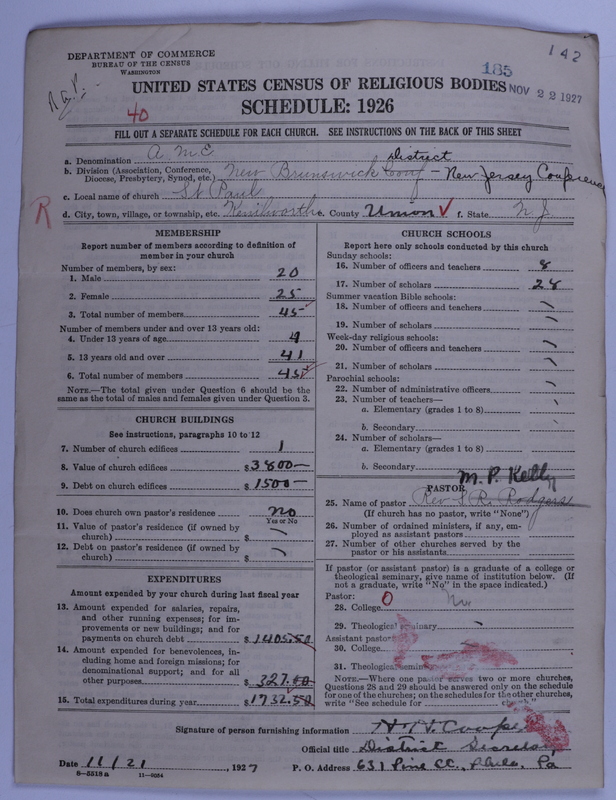 142
DEPARTMENT OF COMMERCE
BUREAU OF THE CENSUS
WASHINGTON
185
NOV 22 1927
UNITED STATES CENSUS OF RELIGIOUS BODIES
SCHEDULE: 1926
40
FILL OUT A SEPARATE SCHEDULE FOR EACH CHURCH. SEE INSTRUCTIONS ON THE BACK OF THIS SHEET
a. Denomination A. M. E.
District
b. Division (Association, Conference, Diocese, Presbytery, Synod, etc.) New Brunswick Conf - New Jersey Conference
c. Local name of church St Paul
R
d. City, town, village, or township, etc. Kenilworth e. County Union f. State N. J.
MEMBERSHIP
Report number of members according to definition of
member in your church
Number of members, by sex:
1. Male 20
2. Female 25
3. Total number of members 45
Number of members under and over 13 years old:
4. Under 13 years of age 4
5. 13 years old and over 41
6. Total number of members 45
NOTE.—The total given under Question 6 should be
same as the total of males and females given under Question 3.
CHURCH BUILDINGS
See instructions, paragraphs 10 to 12
7. Number of church edifices 1
8. Value of church edifices $ 3800—
9. Debt on church edifices $ 1500—
10. Does church own pastor's residence? no
Yes or No
11. Value of pastor's residence (if owned by
church) $
12. Debt on pastor's residence (if owned by
church) $
EXPENDITURES
Amount expended by your church during last fiscal year
13. Amount expended for salaries, repairs,
and other running expenses; for im-
provements or new buildings; and for
payments on church debt $ 1405.50
14. Amount expended for benevolences, in-
cluding home and foreign missions; for
denominational support; and for all
other purposes $ 327.00
15. Total expenditures during year $ 1732.50
CHURCH SCHOOLS
Report here only schools conducted by this church
Sunday schools:
16. Number of officers and teachers 8
17. Number of scholars 28
Summer vacation Bible schools:
18. Number of officers and teachers
19. Number of scholars
Week-day religious schools:
20. Number of officers and teachers
21. Number of scholars
Parochial schools:
22. Number of administrative officers
23. Number of teachers—
a. Elementary (grades 1 to 8)
b. Secondary
24. Number of scholars—
a. Elementary (grades 1 to 8)
b. Secondary
M. P. Kelly
PASTOR
25. Name of pastor Rev S. R. Rodgers
(If church has no pastor, write "None")
26. Number of ordained ministers, if any, em-
ployed as assistant pastors
27. Number of other churches served by the
pastor or his assistants
If pastor (or assistant pastor) is a graduate of a college or
theological seminary, give name of institution below. (If
not a graduate, write "No" in the space indicated.)
Pastor: 0
28. College No
29. Theological seminary
Assistant pastor:
30. College
31. Theological seminary
NOTE.—Where one pastor serves two or more churches,
Questions 28 and 29 should be answered only on the schedule
for one of the churches; on the schedules for the other churches,
write "See schedule for church."
Signature of person furnishing information H. H. Cooper
Official title District Secretary
Date 11/21 1927 P. O. Address 631 Pine St., Phila, Pa
8-5518a 11-9054